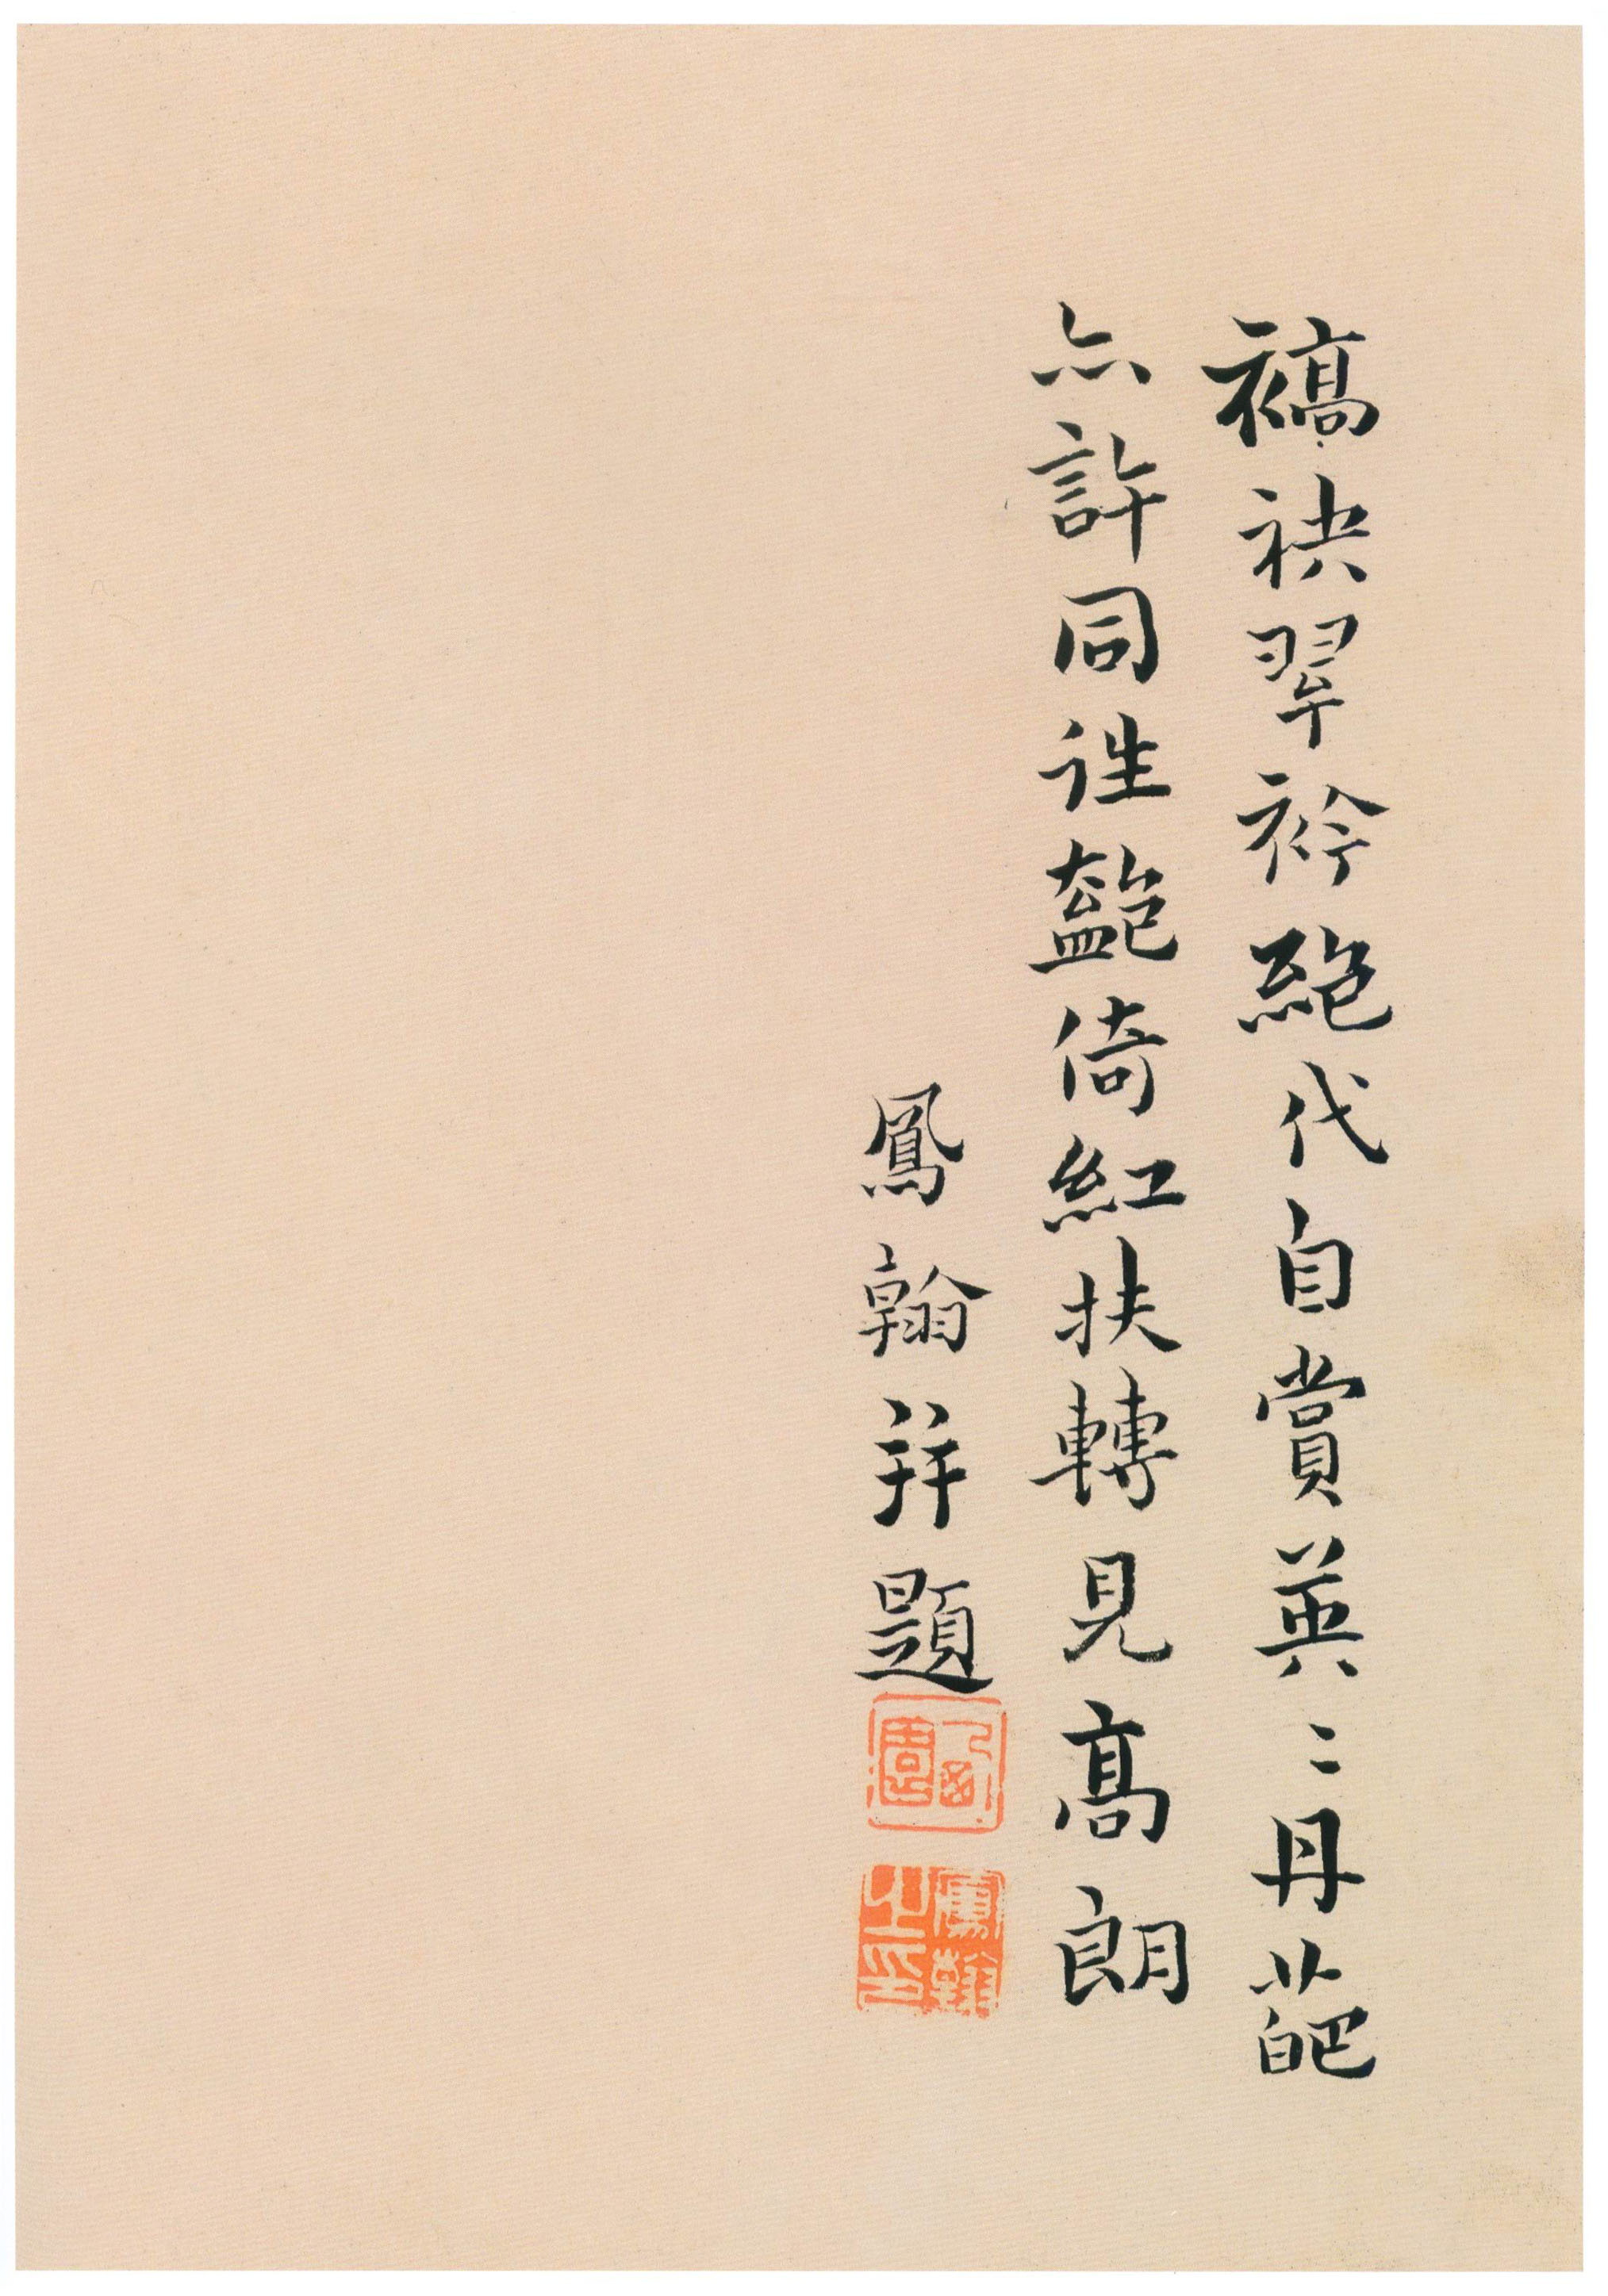 縞袂翠衿絕代自賞英〻丹葩
亦許同徃豔倚紅扶轉見高朗
鳳翰并題
鳳翰之印